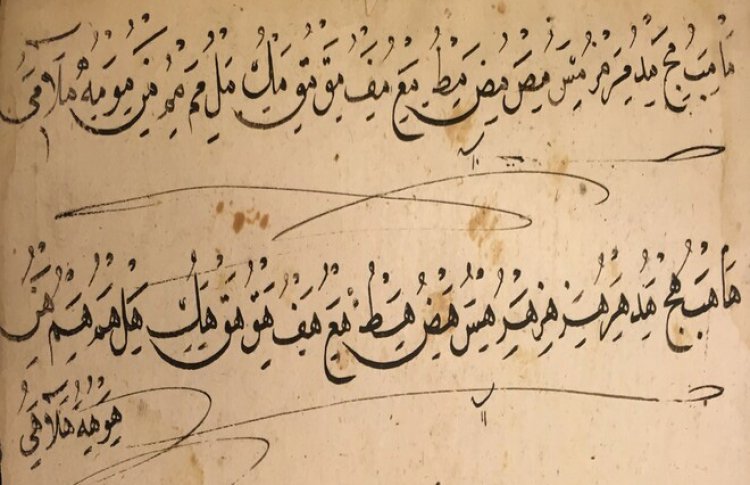 ما مب مج مد مر مز مس مص مض مط مع مف مق مق مك مل مم مم من مو مه ملا مى
ها هب هج هد هر هز هز هر هس هض هط هع هف هق هق هك هل هم هم هن
هو هه هلا هى